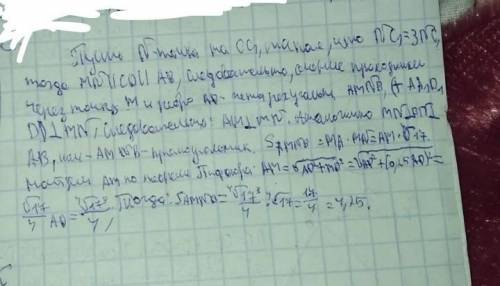 Пусть N-точка на CC₁ такая, что NC₁=3NC,
тогда MN||CD||AB, следовательно, сечение проходящее
через точку M и ребро AB - четырехугольник AMNB,
DD₁⊥MN, следовательно: AM⊥MN. Аналогично
AB, или - AMNB - прямоугольник. S_AMNB = MA·MN=AM·√17.
Найдем AM по теореме Пифагора: AM=√AD²+MD²=√AD²+(0,25AD)²=
√17/4 AD = /4, Тогда: S_AMNB= /4·√17=17/4=4,25.